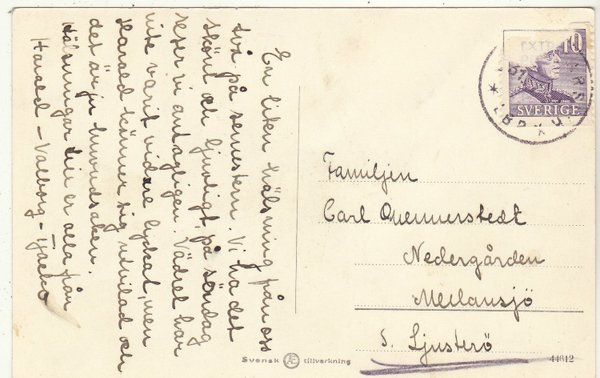 En liten hälsning från oss
två på semestern. Vi ha det
skönt och ljuvligt på söndag
reser vi antagligen. Vädret har
inte varit vidare lyckat, men
Harald känner sig utvilad och
det är ju huvudsaken.
Hälsningar till er alla från
Harald - Valborg -
10
SVERIGE
Familjen
Carl Quennerstedt
Nedergården
Mellansjö
S. Ljusterö
Svensk Æ tillverkning
44612